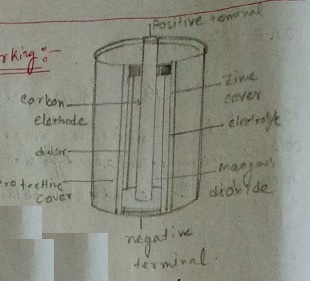 Positive terminal
rking :-
carbon
elerhode
zinc
cover
elecholyte
divisor
protective
cover
mangnous
dioxide
negative
terminal.